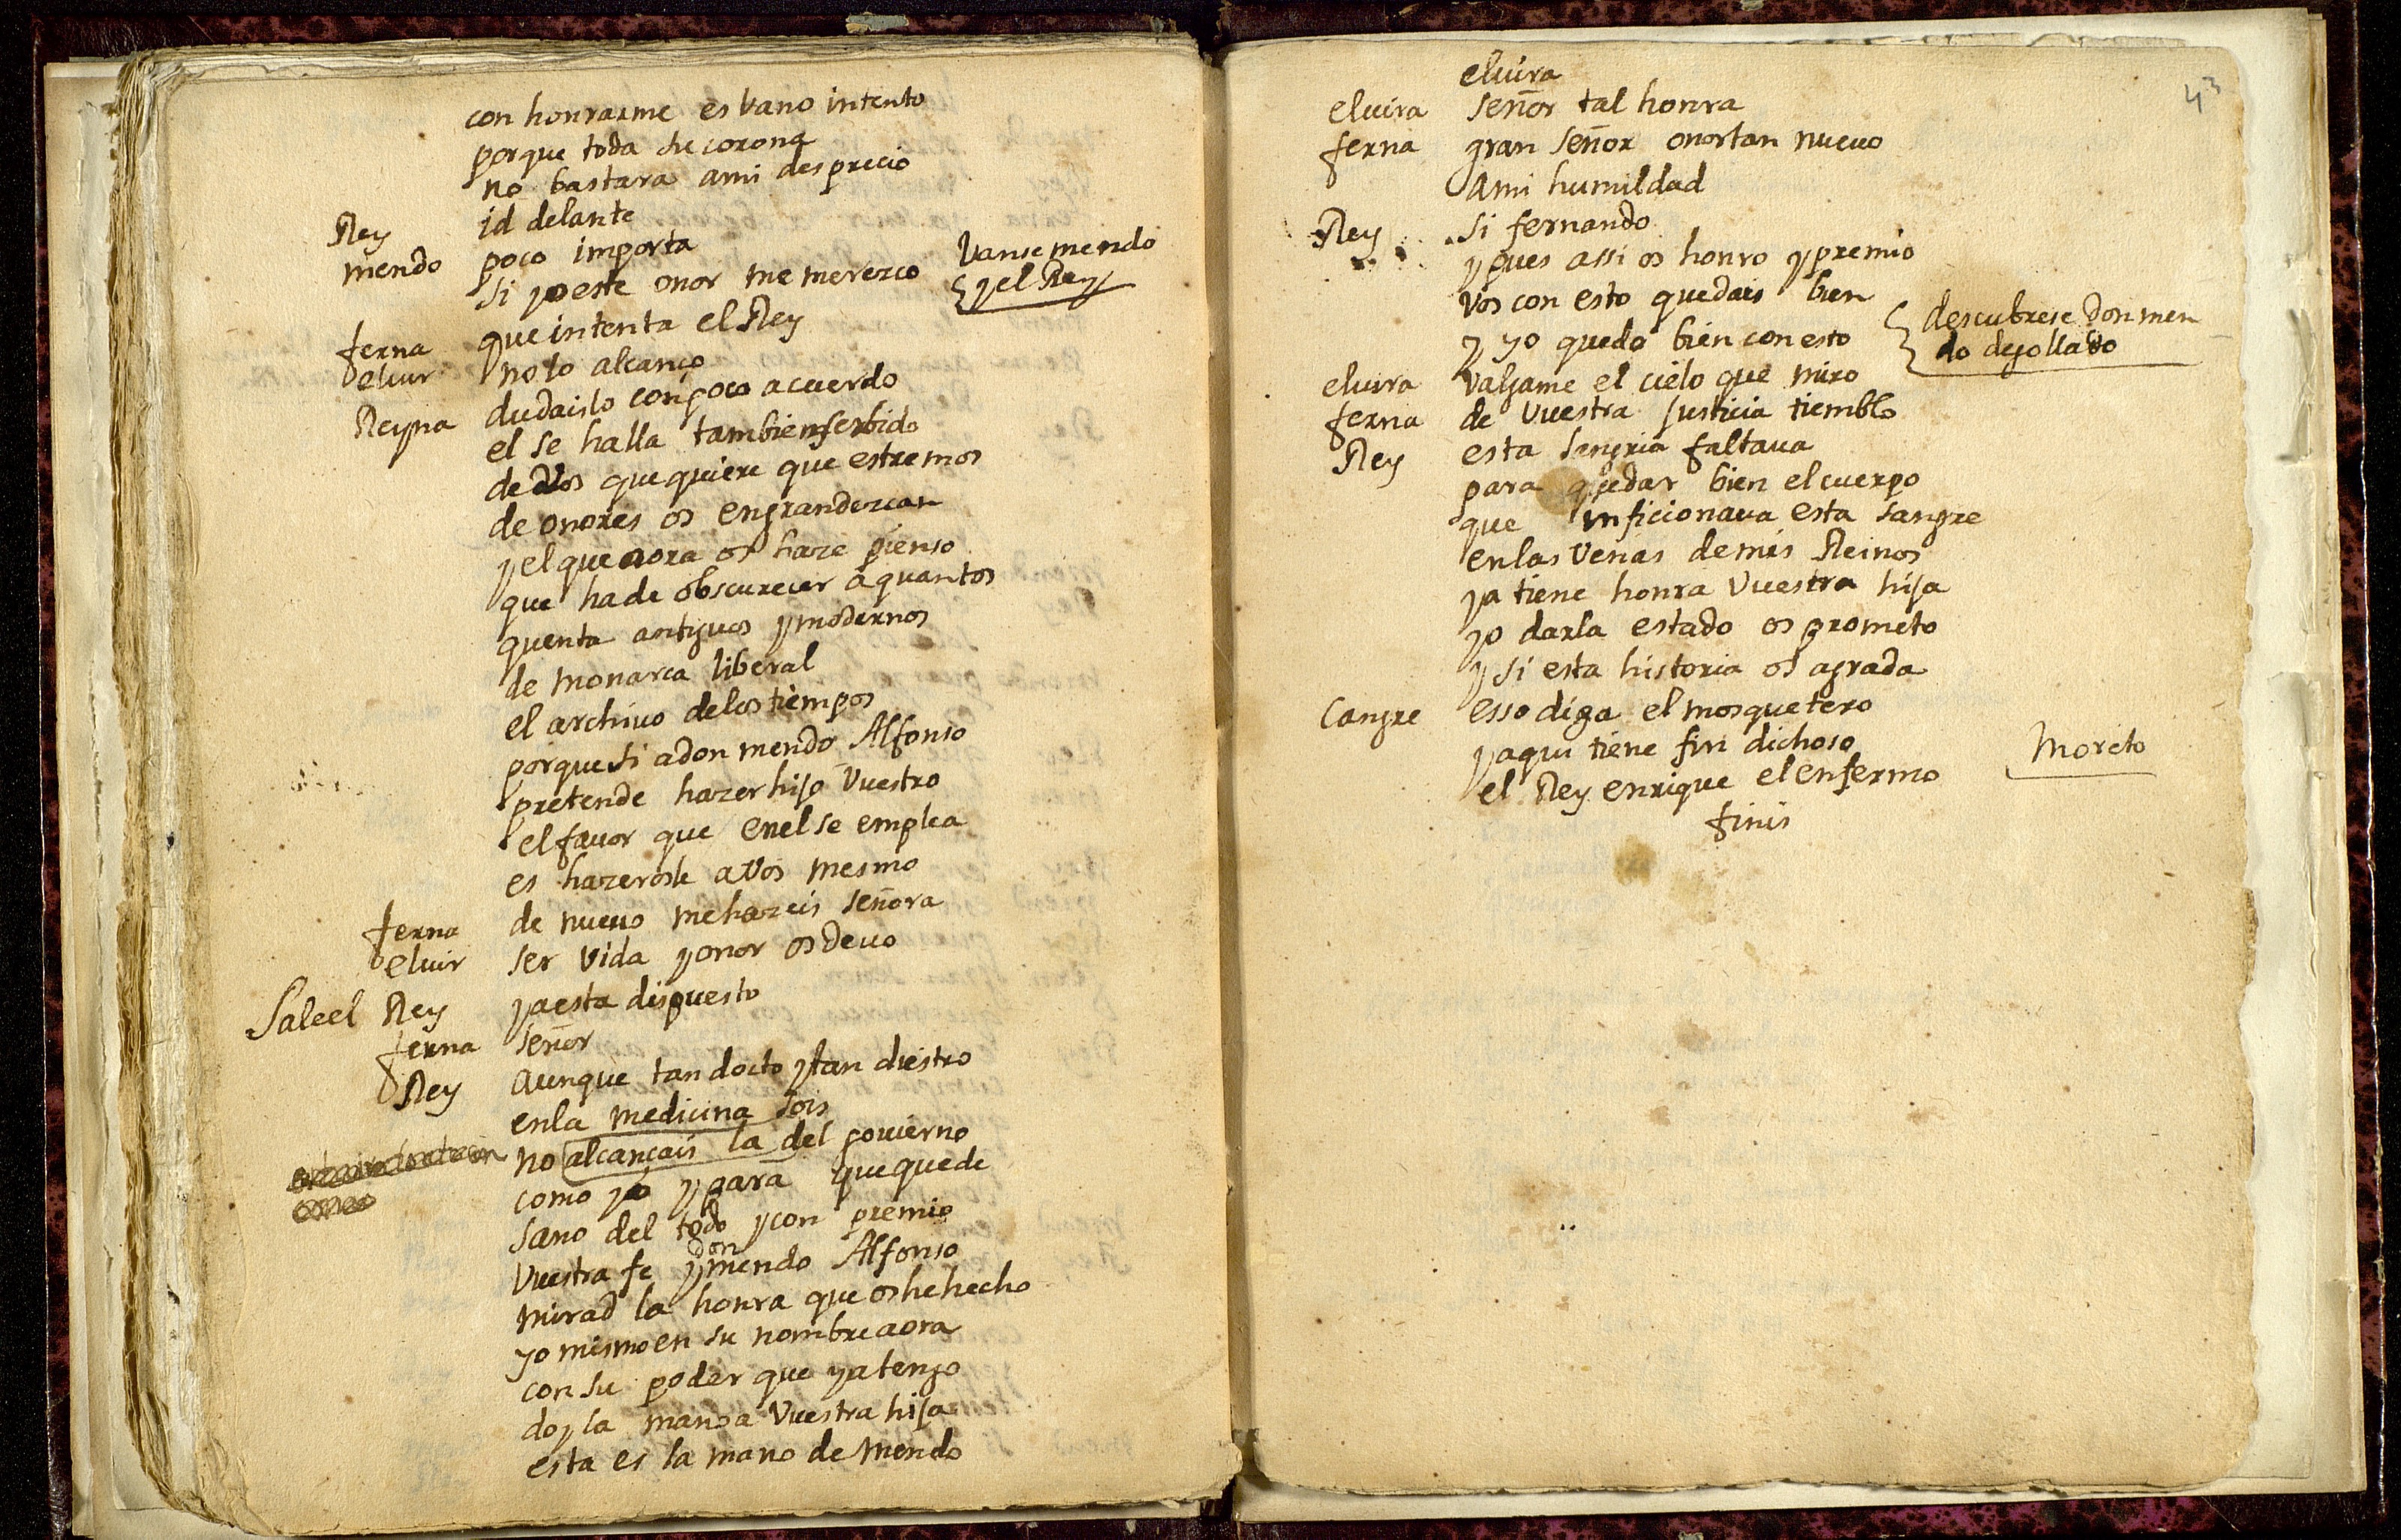 con honrarme es vano intento
porque toda su corona
no bastara ami desprecio
Rey id delante
mendo poco importa
si yo este onor me merezco vanse mendo
y el Rey
ferna que intenta el Rey
eluir no lo alcanço
Reyna dudaislo con poco acuerdo
el se halla tambien serbido
de vos que quiere que estremos
de onores os engrandezcan
y el que aora os haze pienso
que ha de obscurecer a quantos
quenta antiguos y modernos
de monarca liberal
el archiuo de los tiempos
porque si a don mendo Alfonso
pretende hazer hijo vuestro
el fauor que en el se emplea
es hazerosle a vos mesmo
ferna de nueuo me hazeis señora
eluir ser vida y onor os deuo
Sale el Rey ya esta dispuesto
ferna señor
Rey aunque tan docto y tan diestro
en la medicina sois
no alcançais la del gouierno
como yo y para que quede
sano del todo y con premio
don
vuestra fe y mendo Alfonso
mirad la honra que os he hecho
yo mismo en su nombre aora
con su poder que ya tengo
doy la mano a vuestra hija
esta es la mano de mendo
43
eluira
eluira señor tal honra
ferna gran señor onor tan nueuo
a mi humildad
Rey si fernando
y pues assi os honro y premio
vos con esto quedais bien
y yo quedo bien con esto descubrese don men
do degollado
eluira valgame el cielo que miro
ferna de vuestra justicia tiemblo
Rey esta sangria faltaua
para quedar bien el cuerpo
que inficionaua esta sangre
en las venas de mis Reinos
ya tiene honra vuestra hija
yo darla estado os prometo
y si esta historia os agrada
Cangre esso diga el mosquetero
y aqui tiene fin dichoso
el Rey enrique el enfermo Moreto
finis